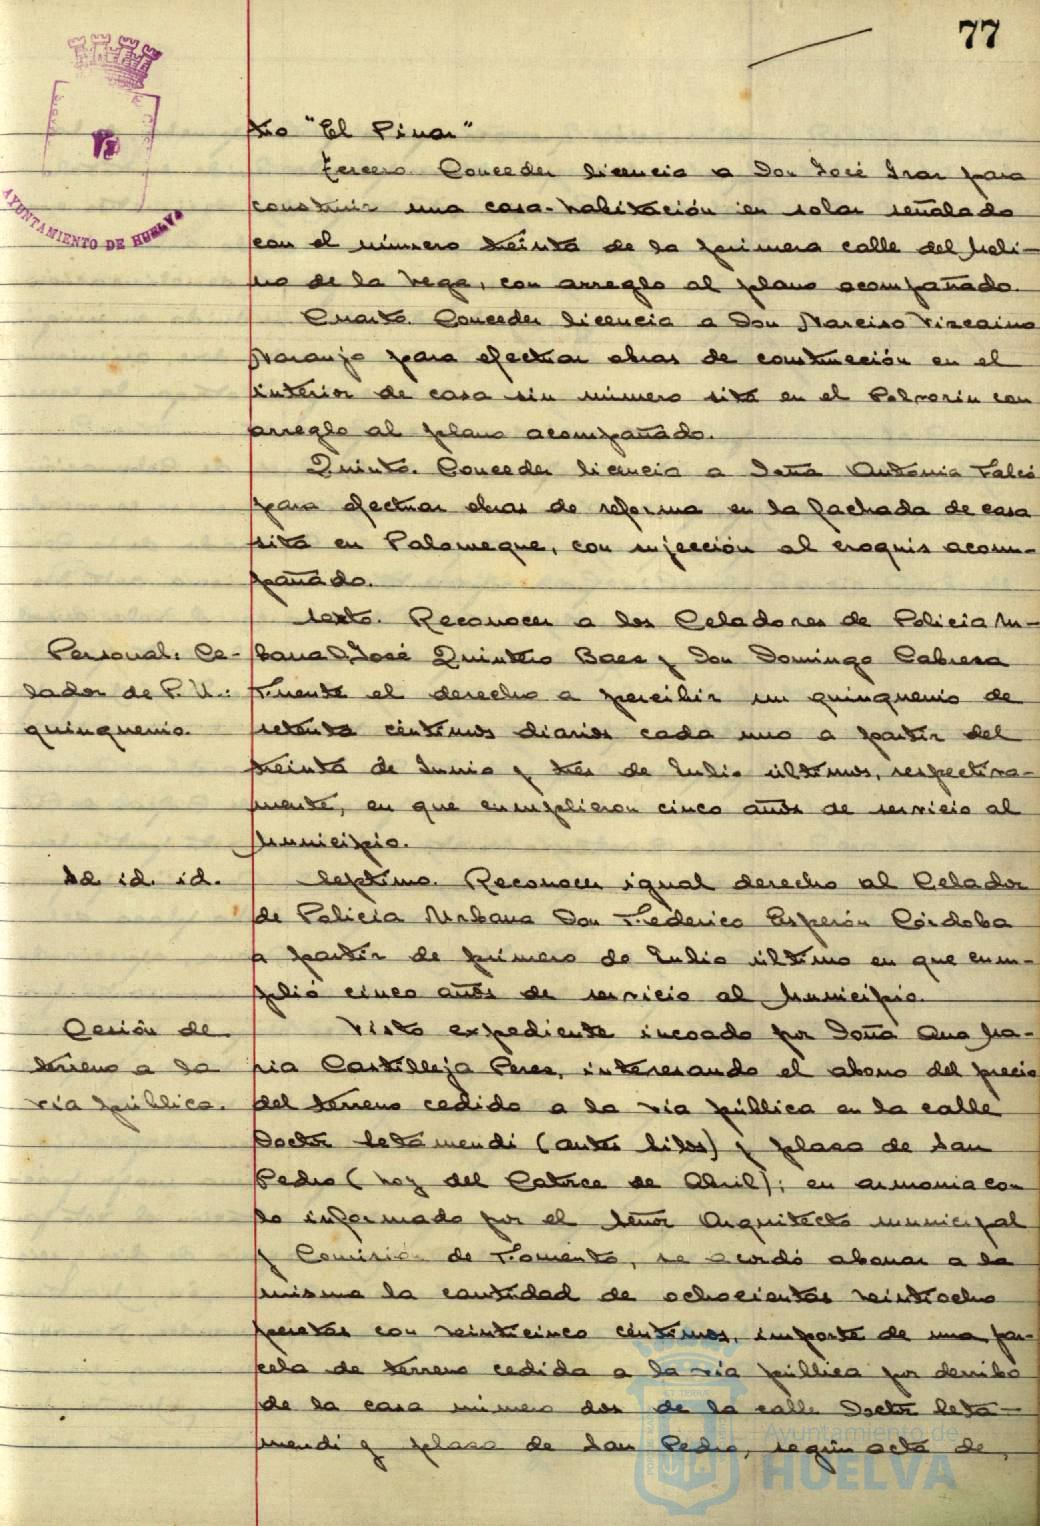 77
AYUNTAMIENTO DE HUELVA
tio "El Pinar"
Tercero. Conceder licencia a Don José para
construir una casa-habitación en solar señalado
con el número treinta de la primera calle del Moli-
no de la Vega, con arreglo al plano acompañado.
Cuarto. Conceder licencia a Don Narciso Vizcaino
Naranjo para efectuar obras de construcción en el
interior de casa sin número sita en el Polvorín con
arreglo al plano acompañado.
Quinto. Conceder licencia a Doña Antonia Falcó
para efectuar obras de reforma en la fachada de casa
sita en Palomeque, con sujección al croquis acom-
pañado.
Sexto. Reconocer a los Celadores de Policia Ur-
Personal: Ce-
lador de P. U.:
quinquenio.
bana D. José Quintero Baez y Don Domingo Cabrera
Fuente el derecho a percibir un quinquenio de
setenta céntimos diarios cada uno a partir del
treinta de Junio y tres de Julio últimos, respectiva-
mente, en que cumplieron cinco años de servicio al
Municipio.
Id. id. id.
Septimo. Reconocer igual derecho al Celador
de Policia Urbana Don Federico Esperón Córdoba
a partir de primero de Julio último en que cum-
plió cinco años de servicio al Municipio.
Cesión de
terreno a la
via pública.
Visto expediente incoado por Doña Ana Ma-
ria Castilleja Perez, interesando el abono del precio
del terreno cedido a la via pública en la calle
Doctor Letamendi (antes Silos) y plaza de San
Pedro (hoy del Catorce de Abril); en armonia con
lo informado por el Señor Arquitecto municipal
y Comisión de Fomento, se acordó abonar a la
misma la cantidad de ochocientas veintiocho
pesetas con veinticinco céntimos, importe de una par-
cela de terreno cedida a la via pública por derribo
de la casa número dos de la calle Doctor Leta-
mendi y plaza de San Pedro, según acta de,
Ayuntamiento de
HUELVA